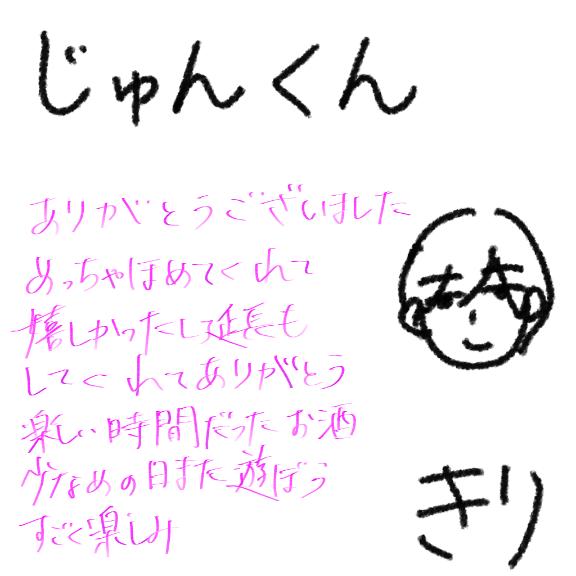 じゅんくん
ありがとうございました
めっちゃほめてくれて
嬉しかったし延長も
してくれてありがとう
楽しい時間だったお酒
少なめの日また遊ぼう
すごく楽しみ
きり